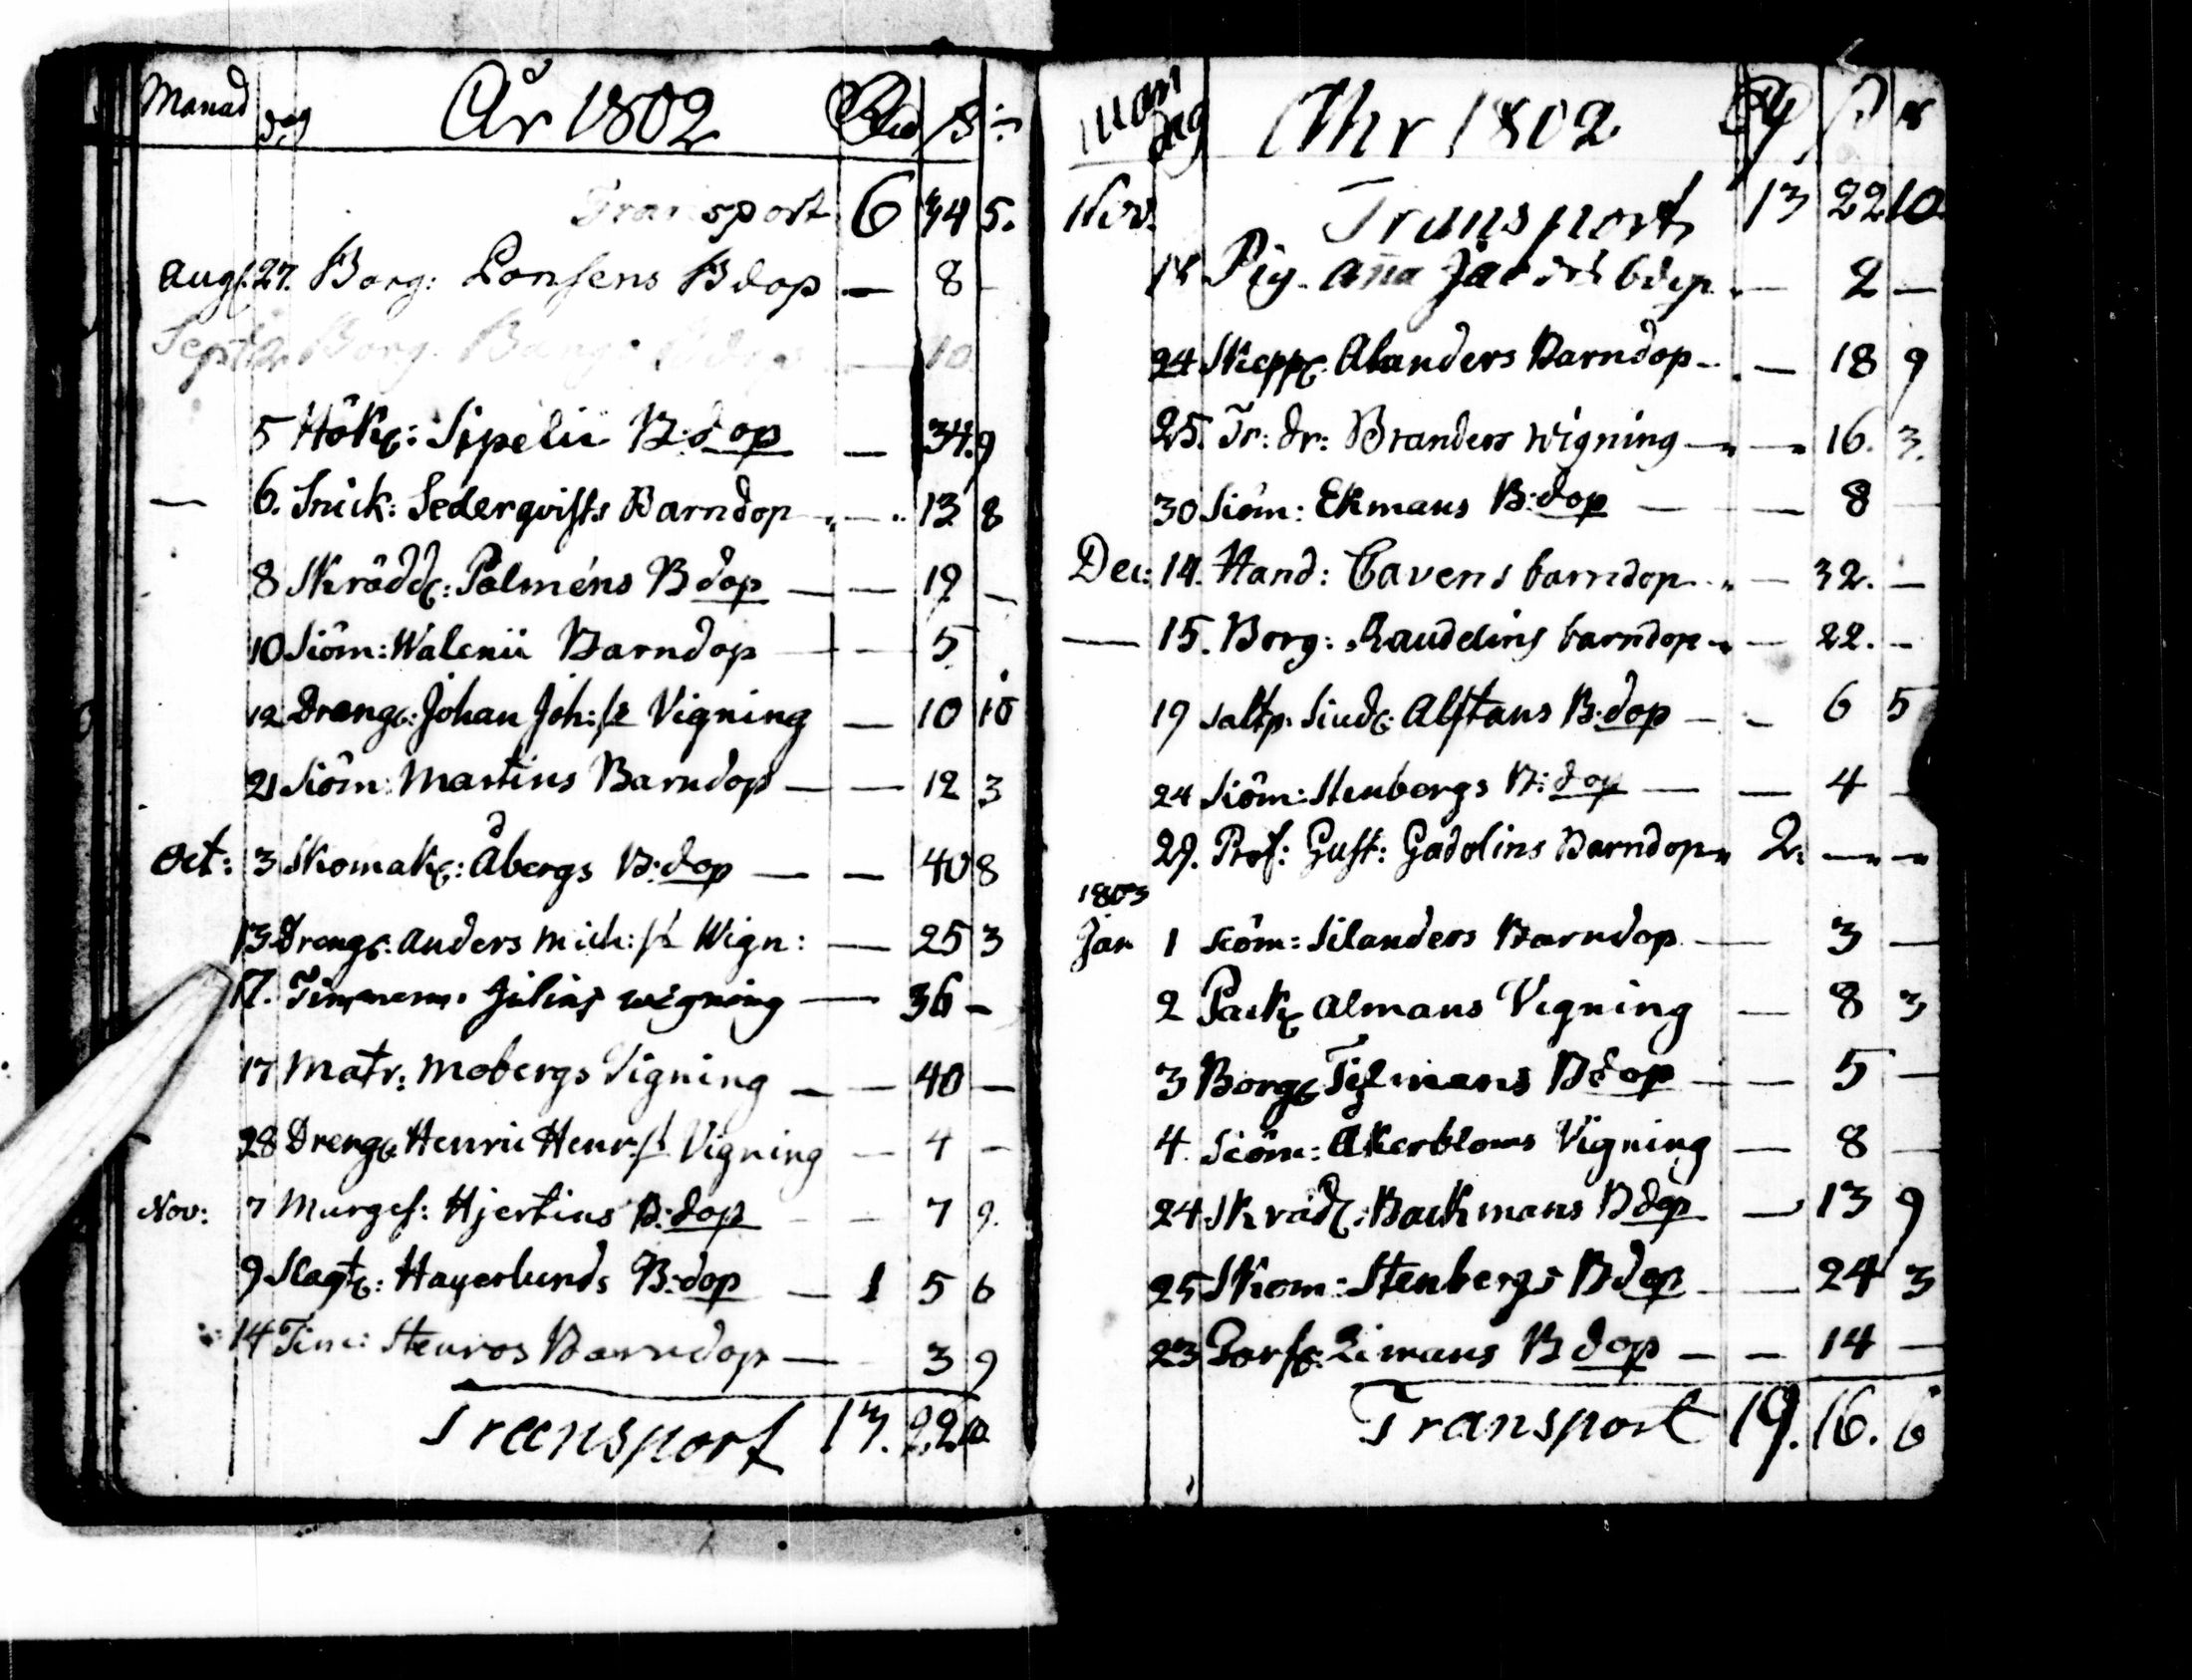 Månad dag År 1802 Rd ß
Transport 6 34 5.
Aug: 27. Borg: Lonsens Bdop — 8 —
Sept: 2. Borg. Bang — 10
5 Hök: Sipelii B:dop — 34. 9
— 6. Snick: Sederqvists Barndop — 13 8
8 Skrädd: Palméns Bdop — — 19 —
10 Siöm: Walenii Barndop — — 5
12 Dreng: Johan Joh: Vigning — 10 10
21 Siöm: Martins Barndop — — 12 3
Oct: 3 Skomak: Åbergs B:dop — — 40 8
13 Dreng: Anders Mich: Wign: — 25 3
17. Timmerm. Julins wigning — 36 —
17 Matr: Mobergs Vigning — — 40 —
28 Dreng Henric Henr. Vigning — 4 —
Nov: 7 Murges: Hjertins B:dop — — 7 9.
9 Slagt: Hagerlunds B:dop — 1 5 6
14 Tim: Stenros Barndop — 3 9
Transport 13. 22 10
Mån dag Åhr 1802
Nov. Transport 13 22 10
18 Pig. Aña bdop — 2 —
24 Skepp: Alanders Barndop — — 18 9
25. Tr: dr: Branders wigning — — 16. 3.
30 Siöm: Ekmans B:dop — — 8 —
Dec: 14. Hand: Cavens barndop — 32. —
— 15. Borg: Raudelins barndop — 22. —
19 Saltp. Siud: Alstans B:dop — — 6 5
24 Siöm: Stenbergs B:dop — — 4 —
29. Prof: Gust: Gadolins Barndop 2. — —
1803
Jan 1 Siöm: Silanders Barndop — 3 —
2 Pack Almans Vigning — 8 3
3 Borg Tilmans Bdop — — 5 —
4. Siöm: Åkerbloms Vigning — 8 —
24 Skräd: Backmans Bdop — 13 9
25 Skom: Stenbergs Bdop — 24 3
23 Zimans B dop — — 14 —
Transport 19. 16. 6